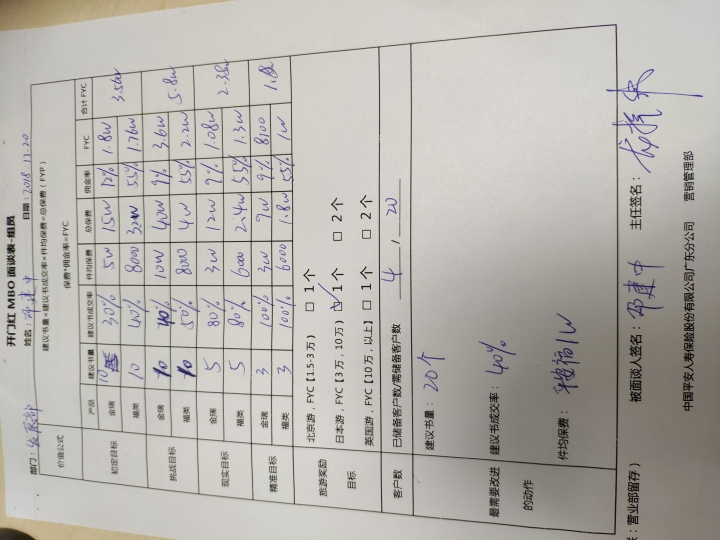 开门红 MBO 面谈表-组员
部门：发展部 姓名：邓建中 日期：2018.11.20
价值公式 建议书量*建议书成交率*件均保费=总保费（FYP）
保费*佣金率=FYC
产品 建议书量 建议书成交率 件均保费 总保费 佣金率 FYC 合计 FYC
初定目标 金瑞 10 30% 5W 15W 12% 1.8W 3.56W
福类 10 40% 8000 32W 55% 1.76W
挑战目标 金瑞 10 40% 10W 40W 9% 3.6W 5.8W
福类 10 50% 8000 4W 55% 2.2W
现实目标 金瑞 5 80% 3W 12W 9% 1.08W 2.38W
福类 5 80% 6000 2.4W 55% 1.3W
精准目标 金瑞 3 100% 3W 9W 9% 8100
福类 3 100% 6000 1.8W 55% 1W
旅游奖励 北京游，FYC【1.5-3万） □ 1个
目标 日本游，FYC【3万，10万） ☑ 1个 □ 2个
英国游，FYC【10万，以上】 □ 1个 □ 2个
客户数 已储备客户数/需储备客户数 4 / 20
最需要改进 建议书量： 20个
的动作 建议书成交率： 40%
件均保费： 福1W
被面谈人签名：邓建中 主任签名：
：营业部留存） 中国平安人寿保险股份有限公司广东分公司 营销管理部